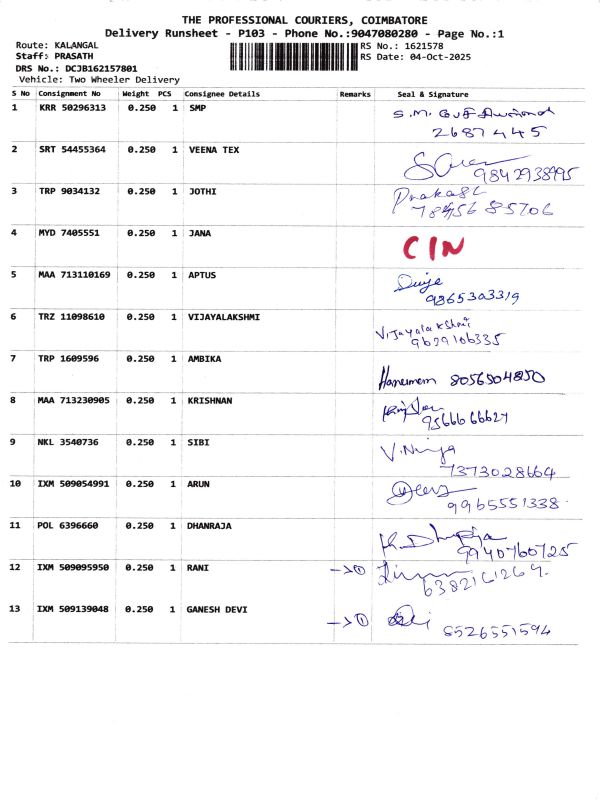 THE PROFESSIONAL COURIERS, COIMBATORE
Delivery Runsheet - P103 - Phone No.:9047080280 - Page No.:1
Route: KALANGAL RS No.: 1621578
Staff: PRASATH RS Date: 04-Oct-2025
DRS No.: DCJB162157801
Vehicle: Two Wheeler Delivery
S No Consignment No Weight PCS Consignee Details Remarks Seal & Signature
1 KRR 50296313 0.250 1 SMP S.M.
2687445
2 SRT 54455364 0.250 1 VEENA TEX
9842938495
3 TRP 9034132 0.250 1 JOTHI Prakash
85706
4 MYD 7405551 0.250 1 JANA CIN
5 MAA 713110169 0.250 1 APTUS
9865303319
6 TRZ 11098610 0.250 1 VIJAYALAKSHMI Vijayalakshmi
9629106335
7 TRP 1609596 0.250 1 AMBIKA 8056504850
8 MAA 713230905 0.250 1 KRISHNAN
9566666627
9 NKL 3540736 0.250 1 SIBI
7373028664
10 IXM 509054991 0.250 1 ARUN
9965551338
11 POL 6396660 0.250 1 DHANRAJA
9940760725
12 IXM 509095950 0.250 1 RANI → ①
6382161267
13 IXM 509139048 0.250 1 GANESH DEVI → ①
6526551594